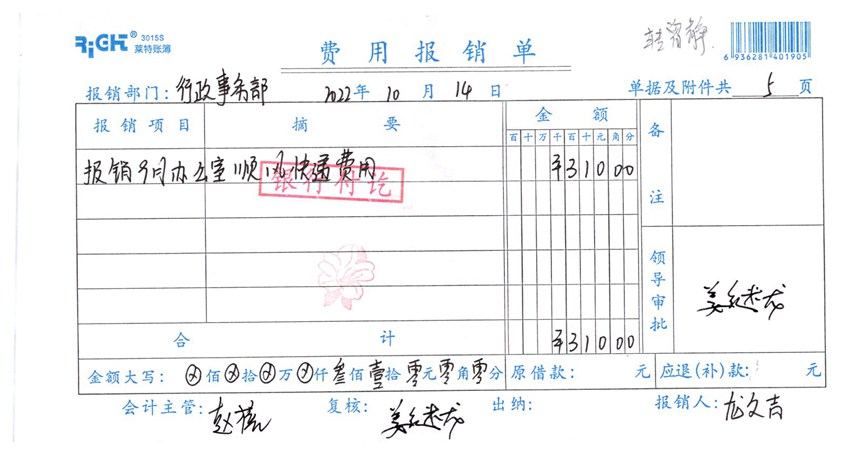 RiGHT® 3015S
莱特账簿
费用报销单
6 936281 401905
报销部门: 行政事务部 2022年 10 月 14 日 单据及附件共 5 页
报销项目 摘要 金额 备注
百 十 万 千 百 十 元 角 分
报销9月办公室顺风快递费用 ¥31000
银行付讫
领导审批
合计 ¥31000
金额大写: ⊗佰⊗拾⊗万⊗仟叁佰壹拾零元零角零分 原借款: 元 应退(补)款: 元
会计主管: 复核: 出纳: 报销人: 龙文吉